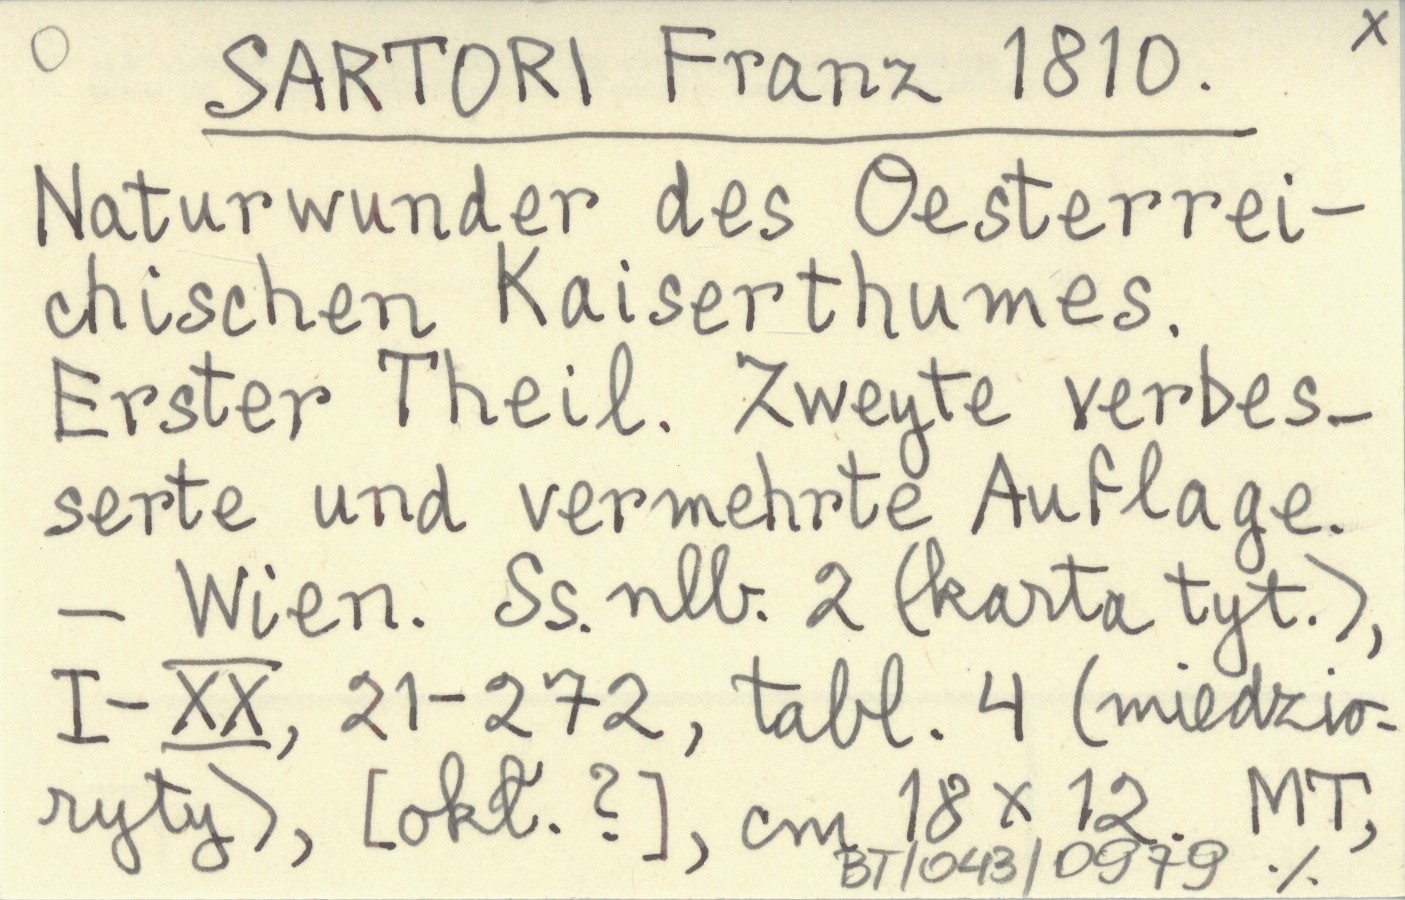 O SARTORI Franz 1810. x
Naturwunder des Oesterrei-
chischen Kaiserthumes.
Erster Theil. Zweyte verbes-
serte und vermehrte Auflage.
— Wien. Ss. nlb. 2 (karta tyt.),
I-XX, 21-272, tabl. 4 (miedzio-
ryty), [okł. ?], cm 18 x 12. MT,
BT/043/0979 ./.